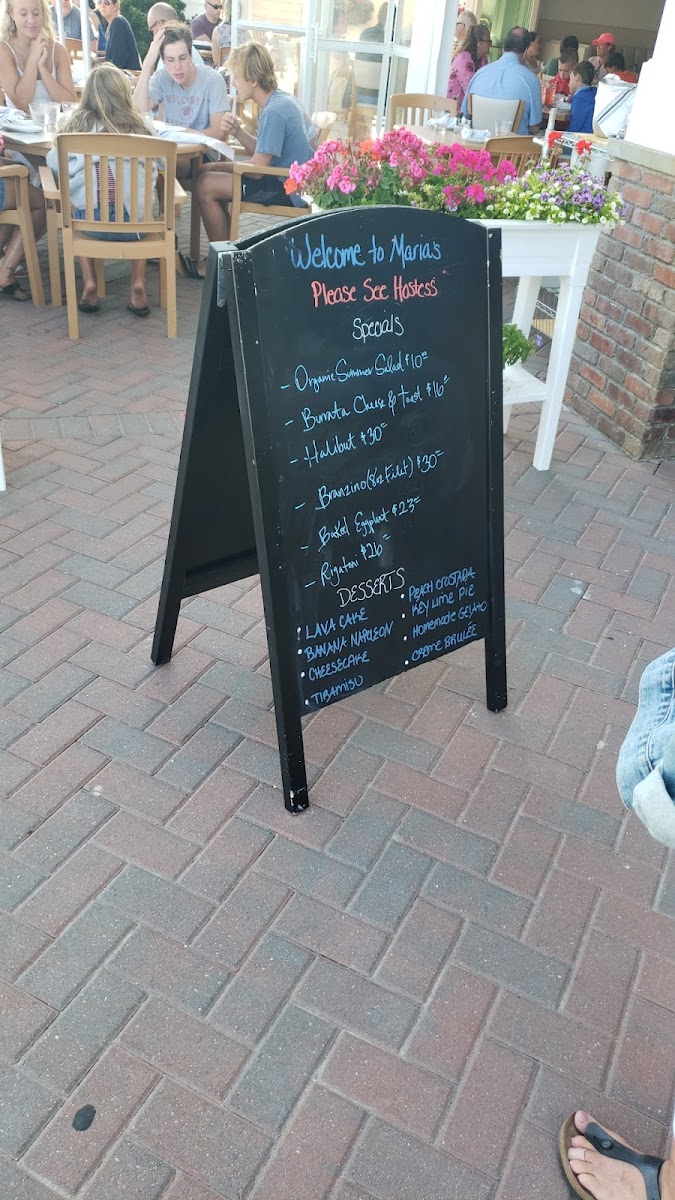 Welcome to Maria's
Please See Hostess
Specials
- Organic Summer Salad $10
- Burrata Cheese & toast $16
- Halibut $30
- Branzino (8oz Filet) $30
- Baked Eggplant $23
- Rigatoni $26
DESSERTS
• LAVA CAKE
• BANANA NAPOLEON
• CHEESECAKE
• TIRAMISU
• PEACH CROSTADA
• KEY LIME PIE
• HOMEMADE GELATO
• CREME BRULÉE